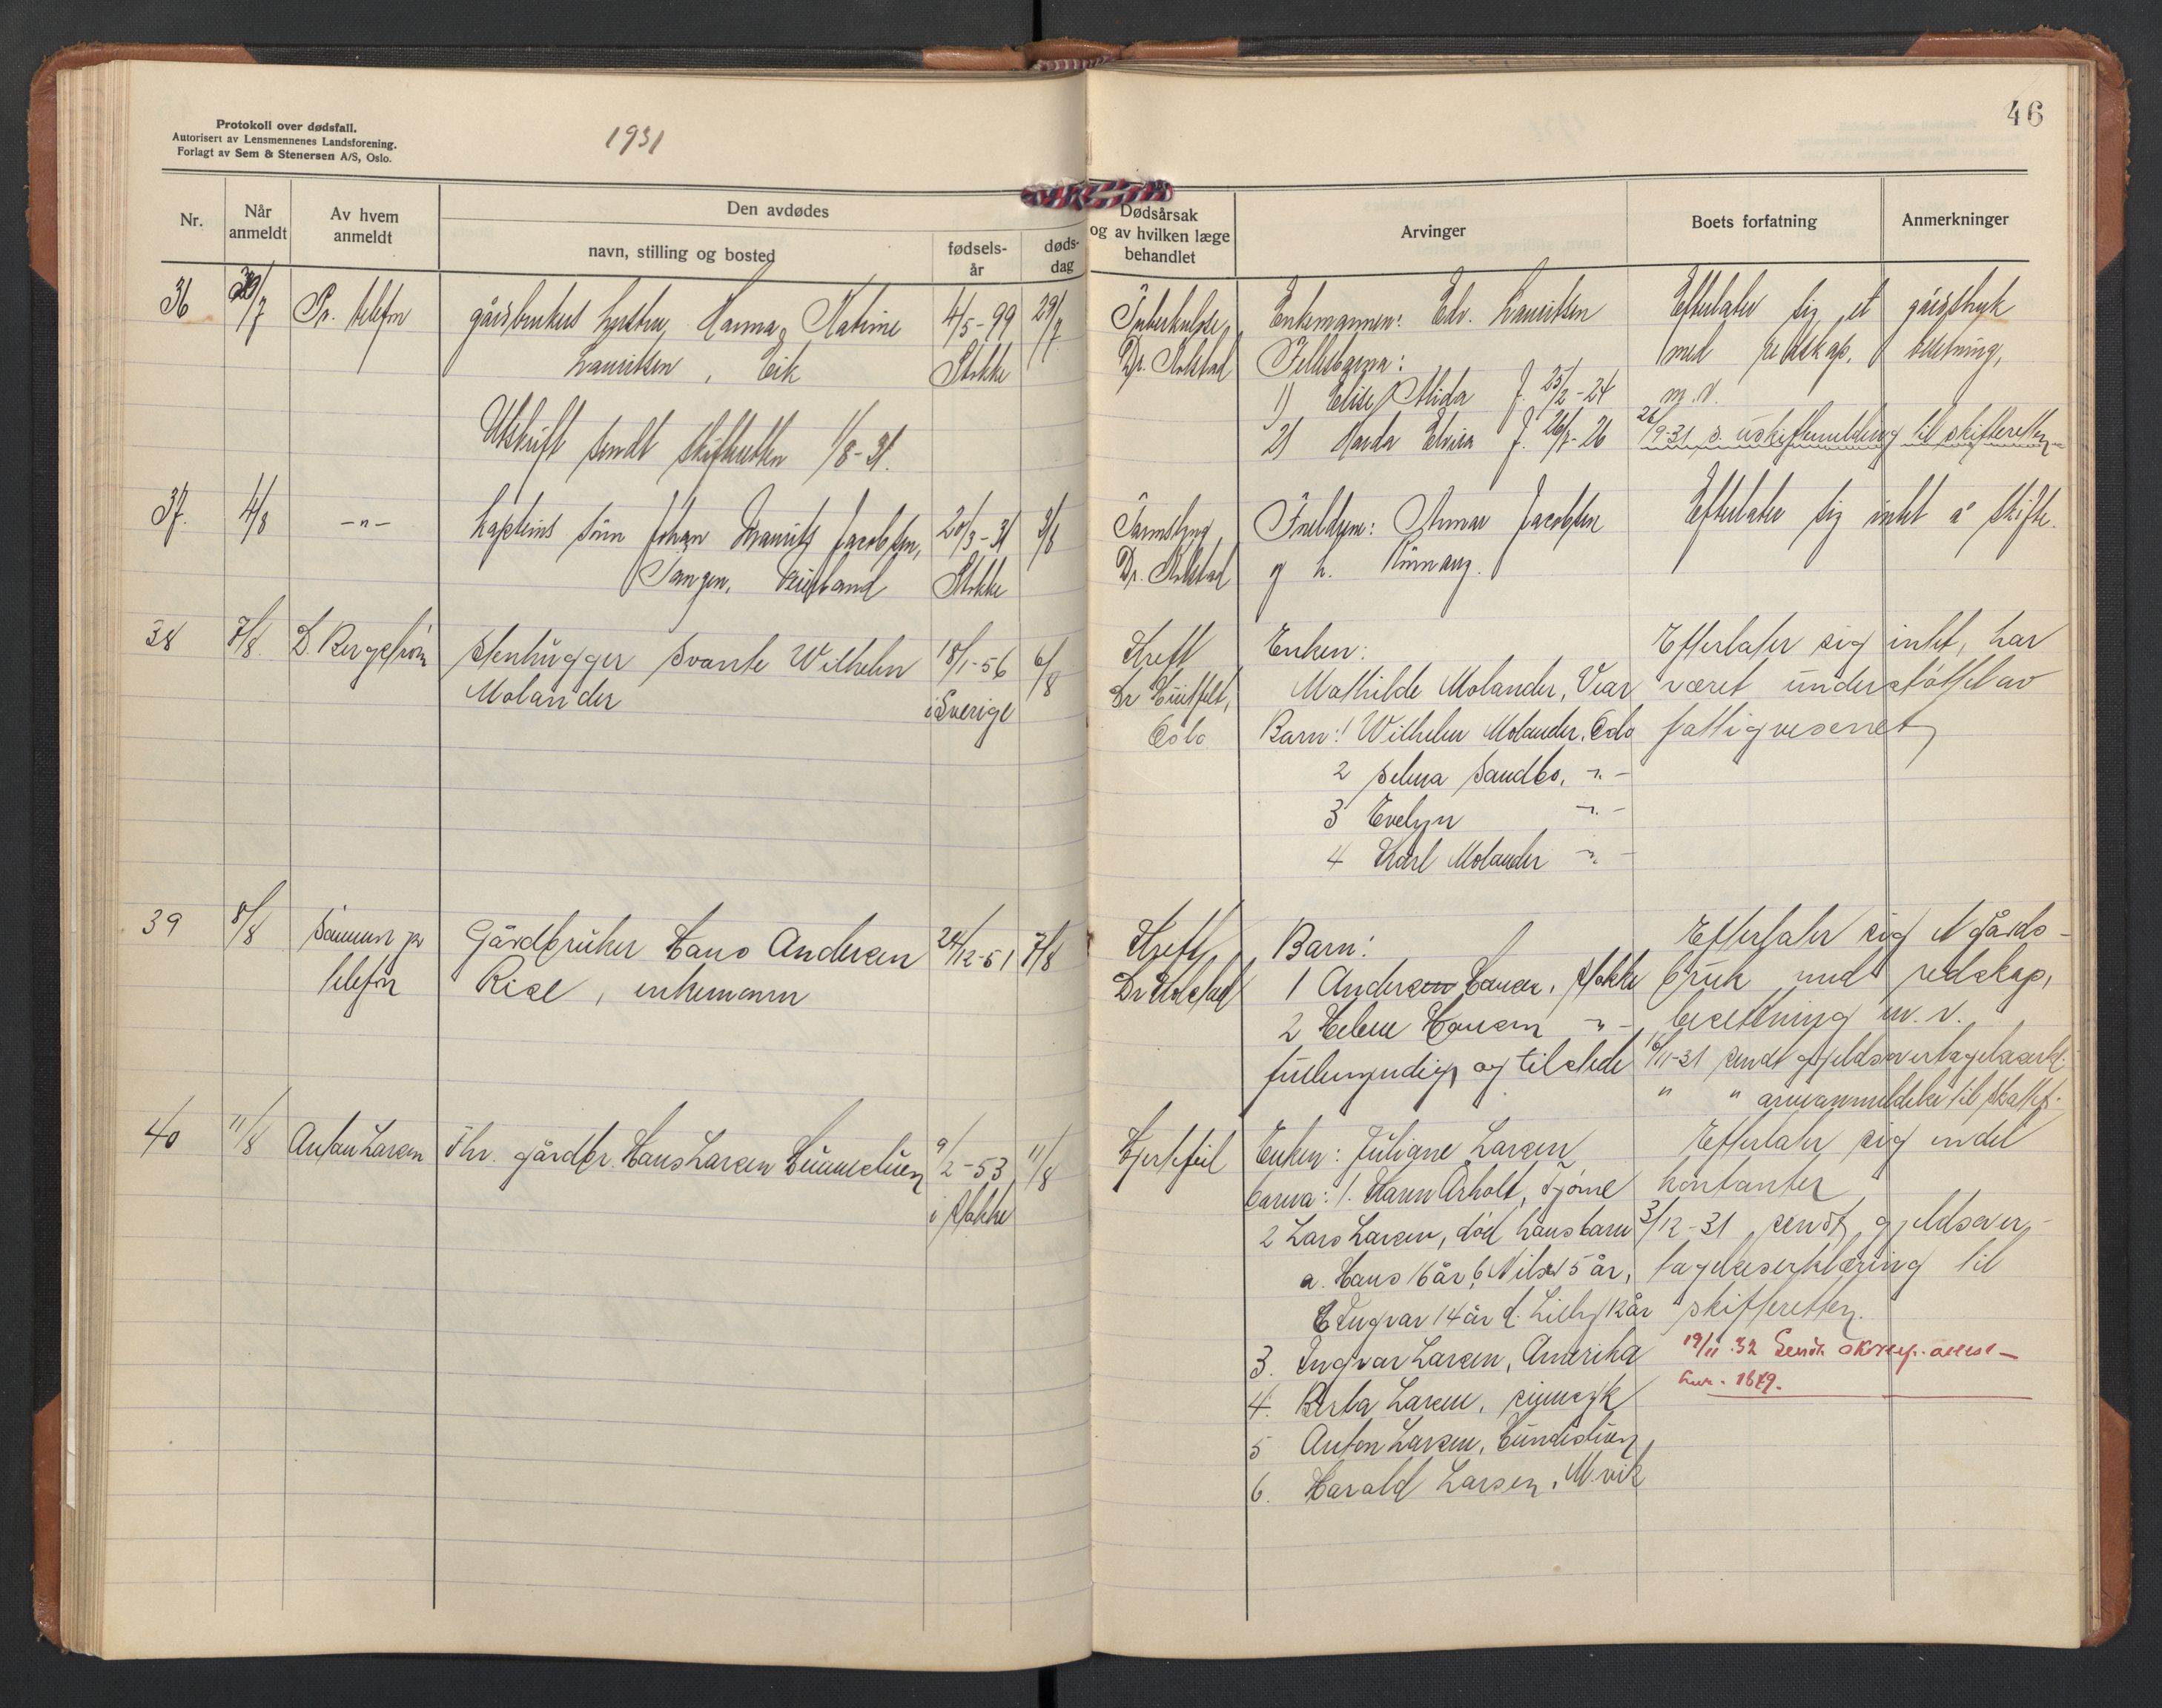 Protokoll over dødsfall.
Autorisert av Lensmennenes Landsforening.
Forlagt av Sem & Stenersen A/S, Oslo.
1931
46
Nr.
Når anmeldt
Av hvem anmeldt
Den avdødes
navn, stilling og bosted
fødsels-år
døds-dag
Dødsårsak og av hvilken læge behandlet
Arvinger
Boets forfatning
Anmerkninger
36
/7
Pr. telefon
gårdbrukers hustru Hanna Katrine
Lauritsen, Eik
4/5-99
Stokke
29/7
Utskrift sendt skifteretten 1/8-31.
Tuberkulose,
Dr. Kolstad
Enkemannen: Edv. Lauritsen
Fellesbarna:
1) Elise Alida f. 25/2-24
2) Elvira f. 26/7-26
Efterlater sig et gårdsbruk
med redskap, besetning,
m.v.
26/9-31 s. uskiftemelding til skifteretten
37.
4/8
-"-
Kapteins sønn Johan Mauritz Jacobsen,
Tangen,
20/3-31
Stokke
3/8
Tarmslyng,
Dr. Kolstad
Foreldrene: Jacobsen
og h.
Efterlater sig intet å skifte.
38
7/8.
D. Bergstrøm
Stenhugger Svante Wilhelm
Molander
18/1-56
i Sverige
6/8
Kreft
Dr
Oslo
Enken:
Mathilde Molander, Vear
Barn: 1 Wilhelm Molander, Oslo
2 Selma Sandbo, -"-
3 Evelyn -"-
4 Karl Molander -"-
Efterlater sig intet, har
været understøttet av
fattigvesenet
39
8/8
Sønnen pr
telefon
Gårdbruker Hans Andersen
Rise, enkemann
24/12-51
7/8
Kreft,
Dr Kolstad
Barn:
1 Anders Hansen, Stokke
2 Helene Hansen -"-
fullmyndig og tilstede
Efterlater sig et gårds-
bruk med redskap,
besetning m.v.
/11-31 sendt gjeldsovertagelseserkl.
" " arveanmeldelse til skattef.
40
11/8
Anton Larsen
Fhv. gårdbr. Hans Larsen
9/2-53
i Stokke
11/8
Hjertefeil
Enken: Juliane Larsen
barna: 1. Karen Årholt, Tjøme
2 Lars Larsen, død hans barn
a. Hans 16 år, b. Nils 15 år,
c Ingvar 14 år d. 12 år
3. Ingvar Larsen, Amerika
4. Berta Larsen, sinnsyk
5 Anton Larsen,
6. Harald Larsen, M.vik
Efterlater sig endel
kontanter
3/12-31 sendt gjeldsover-
tagelseserklæring til
skifteretten.
19/11.32 Sendt
1879.